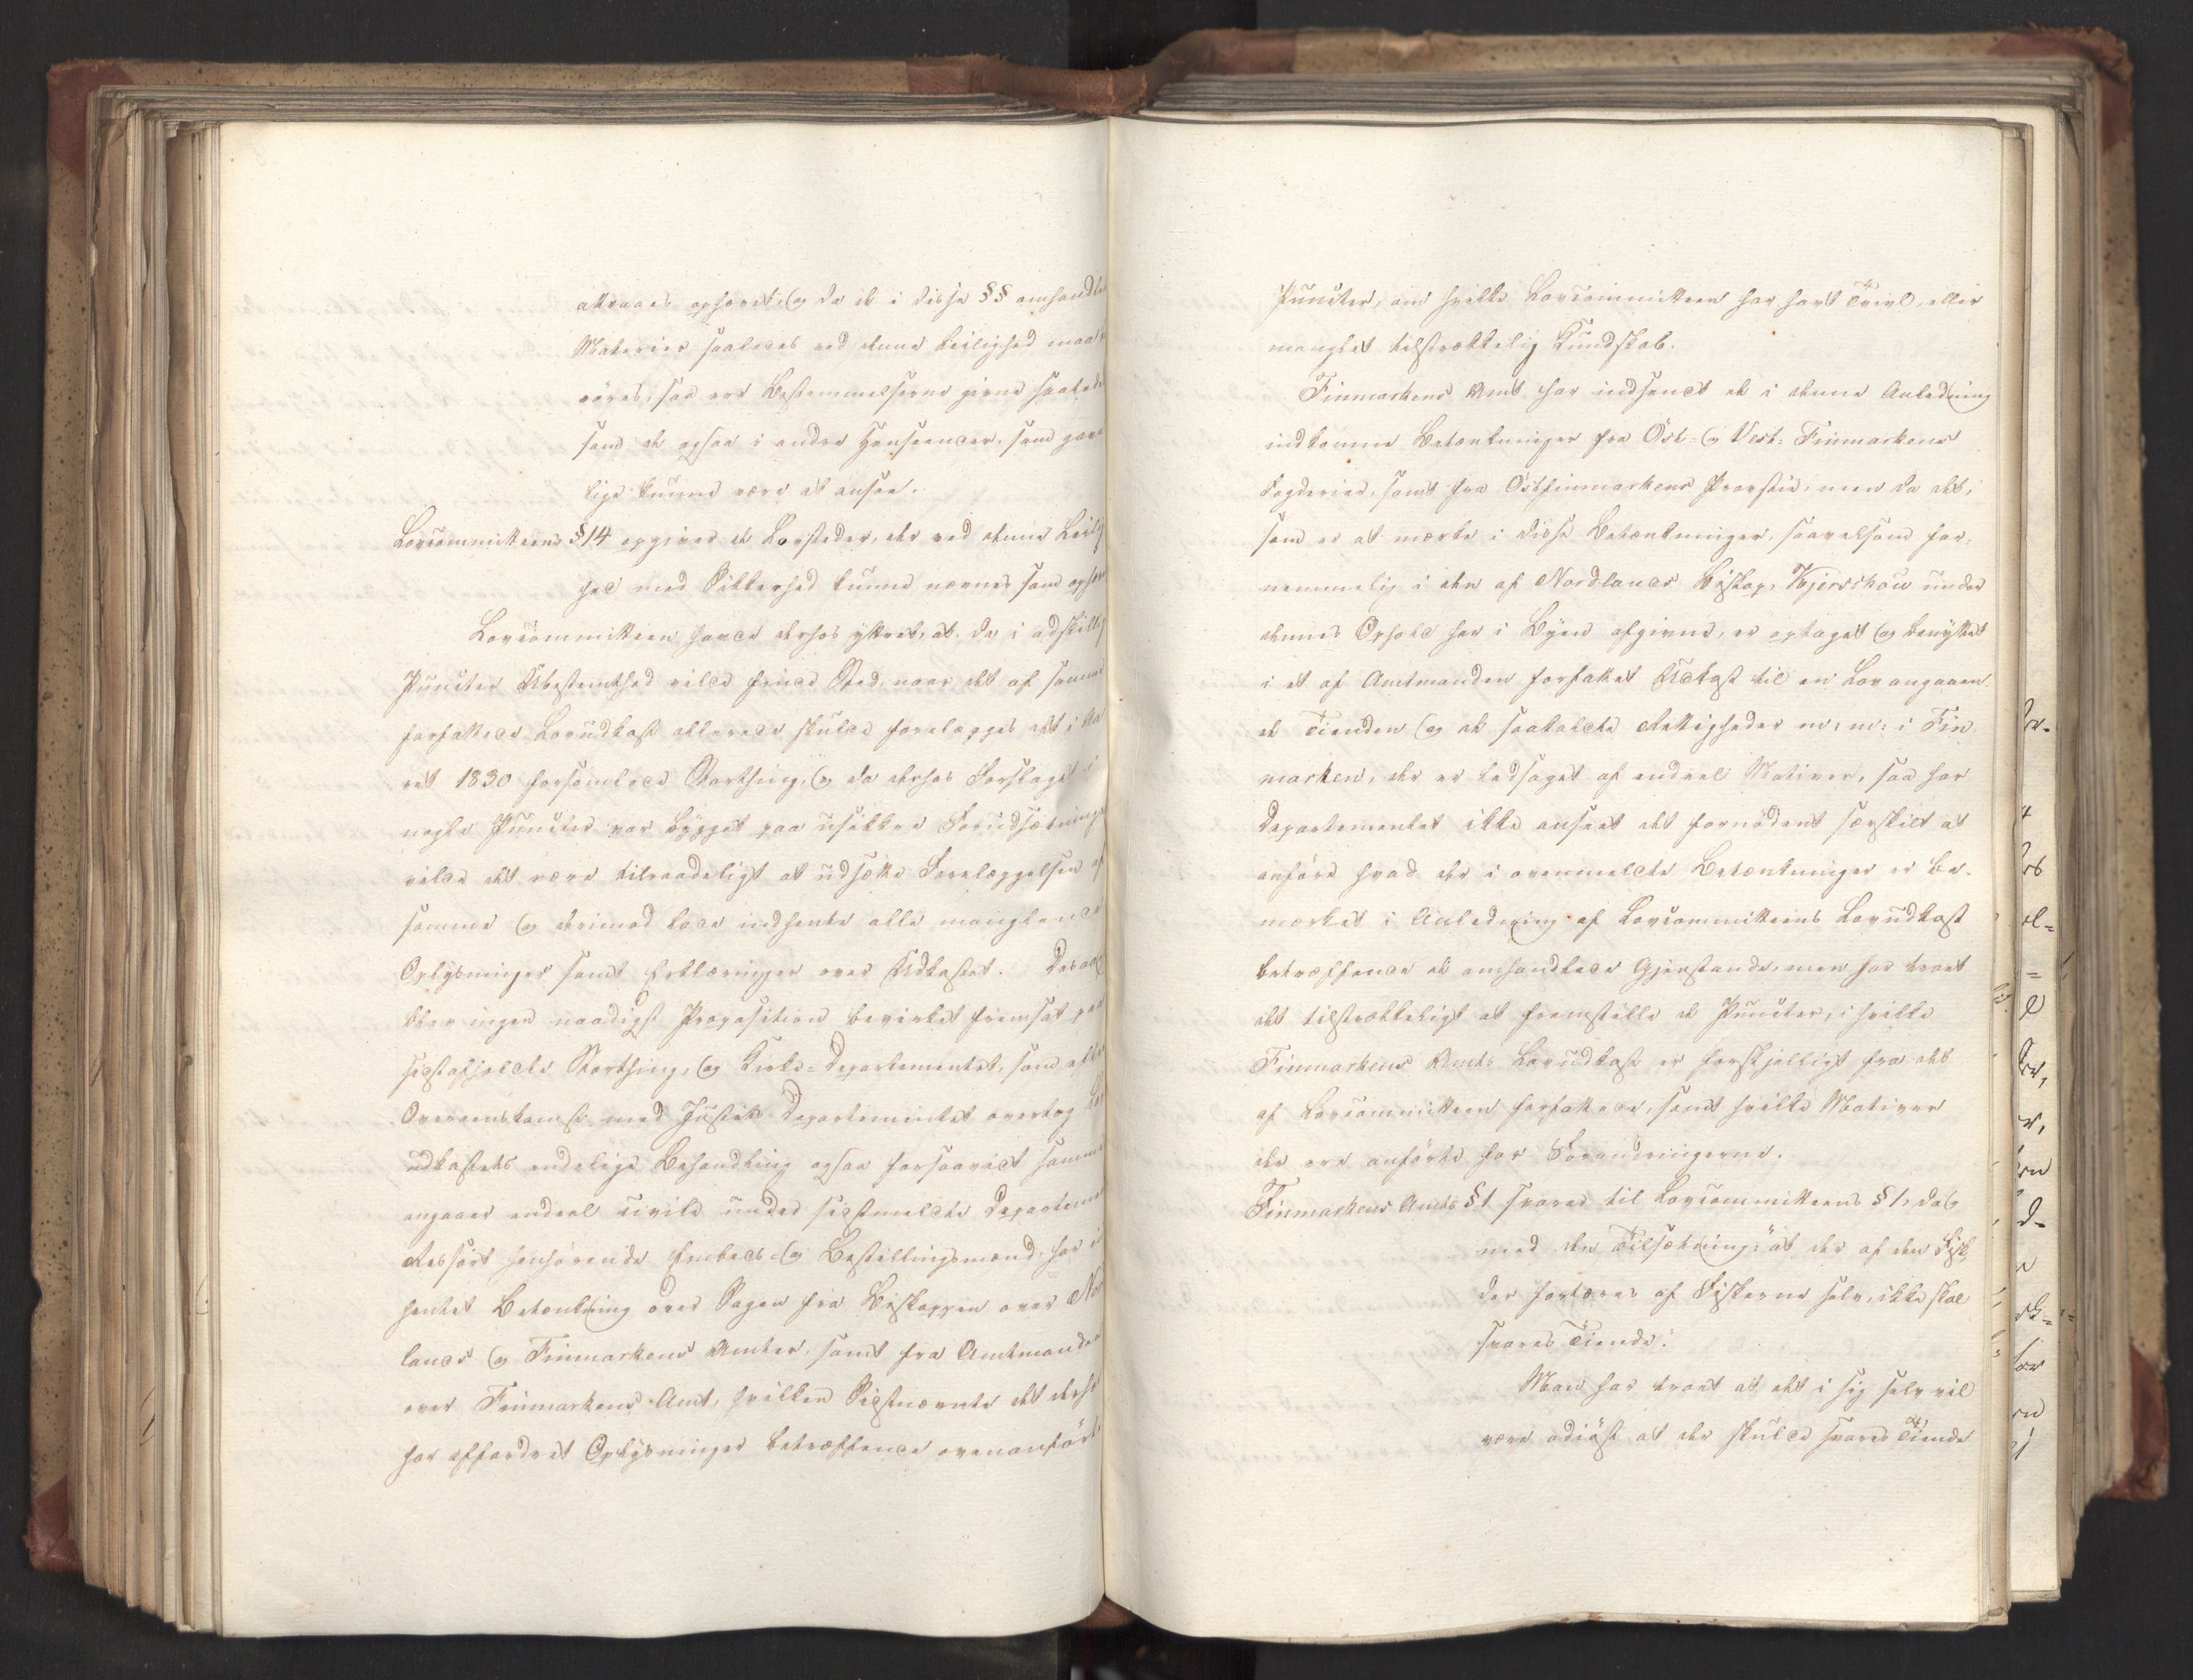 attraaes ophævet, og da de i disse §§ omhandle
Materier saaledes ved denne Leilighed maa
röres, saa ere Bestemmelserne givne saalede
som de ogsaa i andre Henseender, som gavn
lige kunne være at ansee.
Lovcommitteens §14 opgiver de Lovsteder, der ved denne Leilig
hed med Sikkerhed kunne nævnes som ophæv
Lovcommitteen havde derhos yttret, at, da i adskillig
Puncter Ubestemthed vilde finde Sted, naar det af samme
forfattede Lovudkast allerede skulde forelægges det i Aa
ret 1830 forsamlede Storthing, og da derhos Forslaget i
nogle Puncter var bygget paa usikkre Forudsætninge
vilde det være tilraadeligt at udsætte Forelæggelsen af
samme og derimod lade indhente alle manglende
Oplysninger samt Erklæringer over Udkastet. Desaa
blev ingen naadigst Proposition bevirket fremsat paa
sidstafholdte Storthing, og Kirke-Departementet, som efter
Overeenskomst med Justits-Departementet overtog Lov
udkastets endelige Behandling ogsaa forsaavidt samme
angaaer endeel civile under sidstmeldte Departeme
Ressort henhörende Embeds- og Bestillingsmænd, har i
hentet Betænkning over Sagen fra Biskoppen over Nor
lands og Finmarkens Amter, samt fra Amtmanden
over Finmarkens Amt, hvilken Sidstnævnte det derho
har affordret Oplysninger betræffende ovenanfört
Puncter, om hvilke Lovcommitteen har havt Tvivl, eller
manglet tilstrækkelig Kundskab.
Finmarkens Amt har indsendt de i denne Anledning
indkomne Betænkninger fra Öst- og Vest-Finmarkens
Fogderier, samt fra Östfinmarkens Provstie, men da det,
som er at mærke i disse Betænkninger, saavelsom for-
nemmelig i den af Nordlands Biskop, Kjerschow under
dennes Ophold her i Byen afgivne, er optaget og benyttet
i et af Amtmanden forfattet Udkast til en Lov angaaen
de Tienden og de saakaldte Rettigheder m: m: i Fin
marken, der er ledsaget af endeel Motiver, saa har
Departementet ikke anseet det fornödent særskilt at
anföre hvad der i ovenmeldte Betænkninger er be-
mærket i Anledning af Lovcommitteens Lovudkast
betræffende de omhandlede Gjenstande, men har troet
det tilstrækkeligt at fremstille de Puncter, i hvilke
Finmarkens Amts Lovudkast er forskjelligt fra det
af Lovcommitteen forfattede, samt hvilke Motiver
der ere anförte for Forandringerne.
Finmarkens Amts §1 svarer til Lovcommitteens §1, dog
med den Tilsætning: "at der af den Fisk,
der fortæres af Fiskerne selv, ikke skal
svares Tiende."
Man har troet at det i sig selv vil
være odiöst, at der skulde svares Tiende